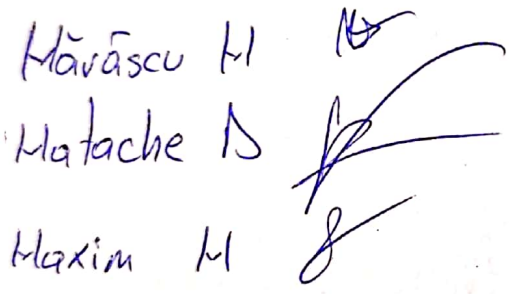 Mărăscu M
Matache D
Maxim M